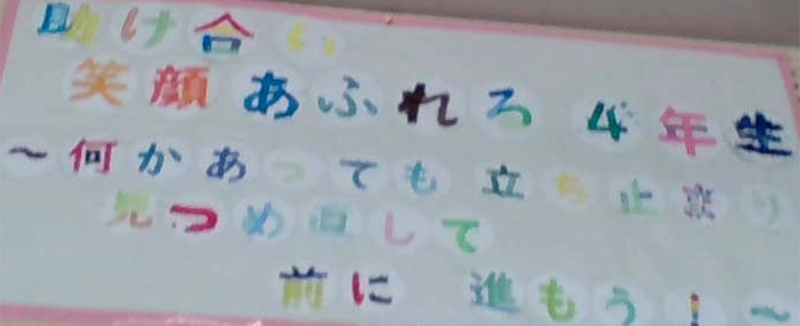 助け合い
笑顔あふれる 4年生
～何かあっても 立ち止まり
見つめ直して
前に 進もう!～